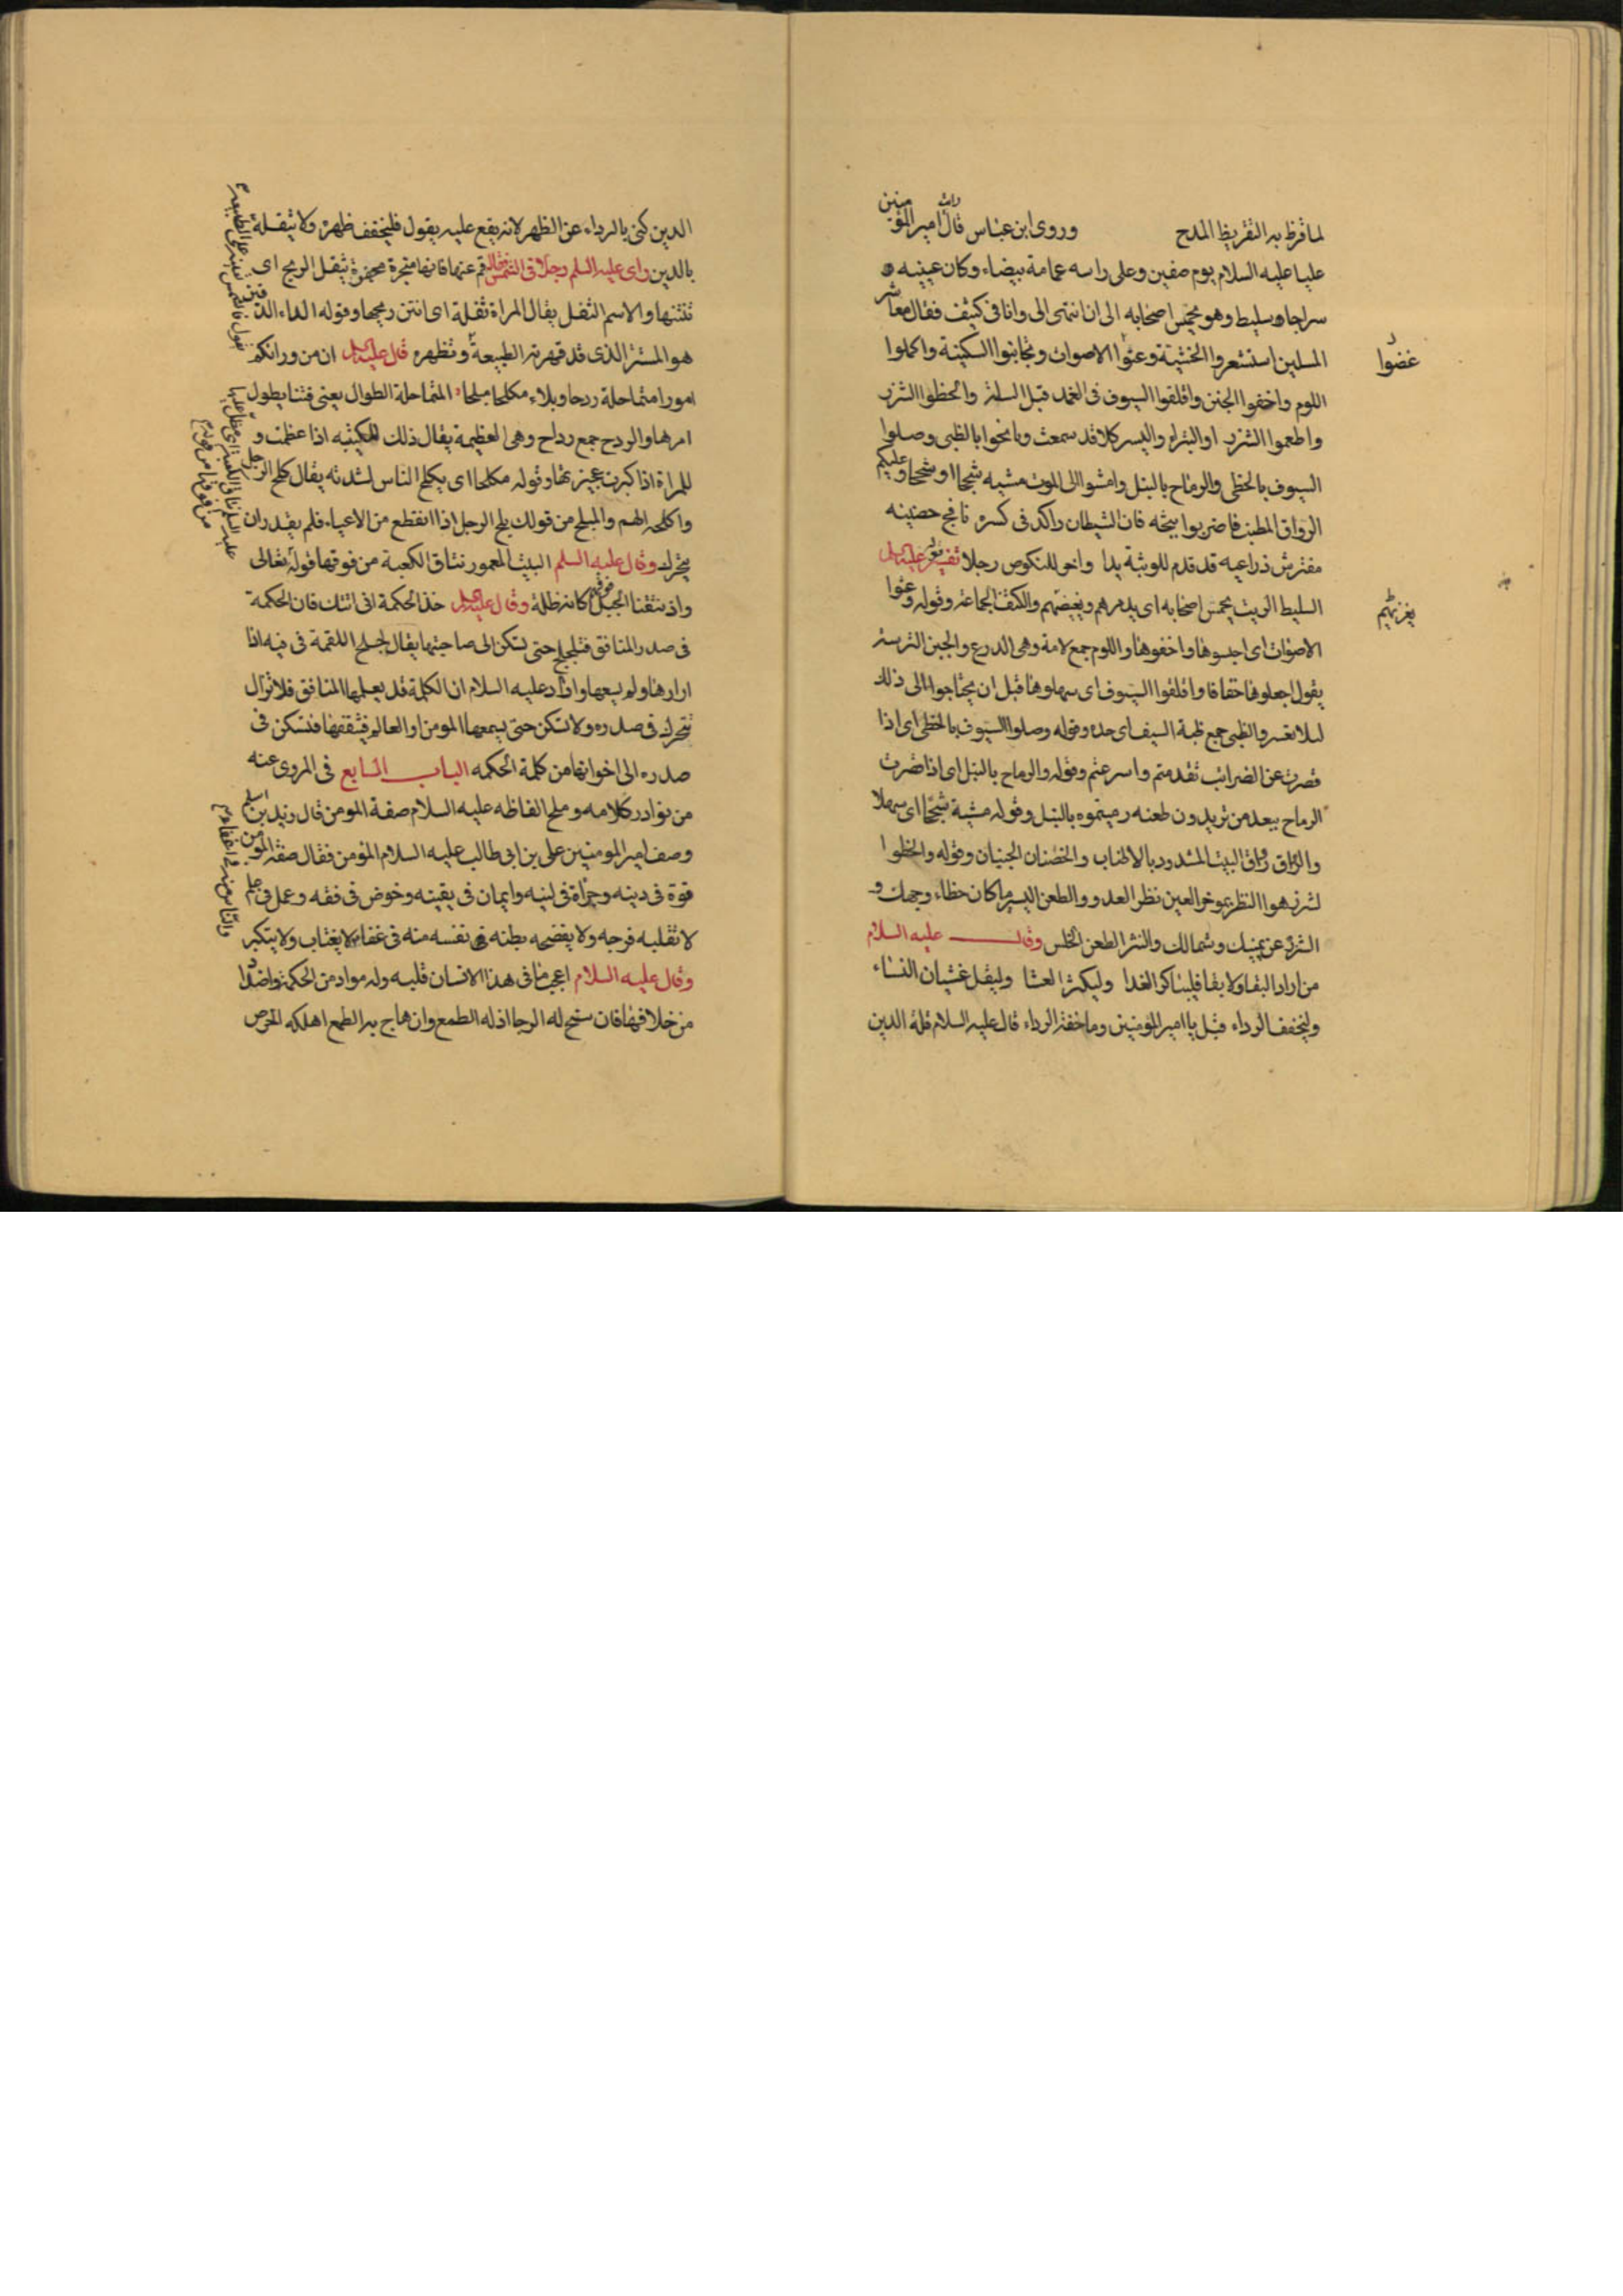 لما قرظ به التقريظ المدح وروى ابن عباس قال رايت امير المؤمنين
عليا عليه السلام يوم صفين وعلى راسه عمامة بيضاء وكان عينيه
سراجا سليط وهو يحمس اصحابه الى ان انتهى الى وانا فى كثف فقال معاشر
المسلمين استشعروا الخشية وعنوا الاصوات وتجلببوا السكينة واكملوا
غضوا
اللوم واخفوا الجنن واقلقوا السيوف فى الغمد قبل السلة والحظوا الشزر
واطعنوا الشزر او النتر او اليسر كلا قد سمعت ونافحوا بالظبى وصلوا
السيوف بالخطى والرماح بالنبل وامشوا الى الموت مشية سجحا او سجحا وعليكم
الرواق المطنب فاضربوا ثبجه فان الشيطان راكد فى كسره نافج حضنيه
مفترش ذراعيه قد قدم للوثبة يدا واخر للنكوص رجلا تفسير قوله عليه السلم
السليط الزيت يحمس اصحابه اى يذمرهم ويغضبهم والكثف الجماعة وقوله وعنوا
يغريهم
الاصوات اى احبسوها واخفوها واللوم جمع لامة وهى الدرع والجنن الترسة
يقول اجعلوها خفافا واقلقوا السيوف اى سهلوها قبل ان يحتاجوا الى ذلك
لئلا تعسر والظبى جمع ظبة السيف اى حده وقوله وصلوا السيوف بالخطى اى اذا
قصرت عن الضرائب تقدمتم واسرعتم وقوله والرماح بالنبل اى اذا قصرت
الرماح ببعد من تريدون طعنه رميتموه بالنبل وقوله مشية سجحا اى سهلا
والرواق رواق البيت المشدود بالاطناب والحضنان الجنبان وقوله والحظوا
لشزر هو النظر بموخر العين نظر العدو والطعن اليسر ما كان حذاء وجهك و
الشزر عن يمينك وشمالك والنتر الطعن الخلس وقال عليه السلام
من اراد البقا ولا بقا فليباكر الغدا وليكثر العشا وليقل غشيان النساء
وليخفف الرداء قيل يا امير المؤمنين وما خفة الرداء قال عليه السلام قلة الدين
الدين كنى بالرداء عن الظهر لانه يقع عليه يقول فليخفف ظهره ولا يثقله
بالدين راى عليه السلم رجلا فى الشمس فقال قم عنها فانها مبخرة مجفرة تثفل الريح اى
تنتنها والاسم الثفل يقال المراة ثفلة اى انتن ريحها وقوله الداء الدفين
هو المستتر الذى قد قهرته الطبيعة وتظهره قال عليه السلم ان من ورائكم
امورا متماحلة ردحا وبلاء مكلحا مبلحا المتماحلة الطوال يعنى فتنا يطول
امرها والردح جمع رداح وهى العظيمة يقال ذلك للكتيبه اذا عظمت و
للمراة اذا كبرت عجيزتها وقوله مكلحا اى يكلح الناس لشدته يقال كلح الرجل
واكلحه الهم والمبلح من قولك بلح الرجل اذا انقطع من الاعياء فلم يقدر ان
يتحرك وقال عليه السلم البيت المعمور نتاق الكعبة من فوقها قوله تعالى
واذ نتقنا الجبل فوقهم كانه ظلة وقال عليه السلم خذ الحكمة انى اتتك فان الحكمة
فى صدر المنافق فتلجلج حتى تسكن الى صاحبتها يقال لجلج اللقمة فى فيه اذا
ادارها ولم يسعها واراد عليه السلام ان الكلمة قد يعلمها المنافق فلا تزال
تتحرك فى صدره ولا تسكن حتى يسمعها المومن او العالم فيثقفها فتسكن فى
صدره الى اخواتها من كلمة الحكمه الباب السابع فى المروى عنه
من نوادر كلامه وملح الفاظه عليه السلام صفة المومن قال زيد بن اسلم
وصف امير المومنين على بن ابى طالب عليه السلام المؤمن فقال صفة المؤمن
قوة فى دينه وجراة فى لينه وايمان فى يقينه وخوض فى فقه وعمل فى علم
لا تغلبه فرجه ولا يفضحه بطنه نفسه منه فى عناء لا يغتاب ولا يتكبر
والناس منه فى اعفاء
وقال عليه السلام اعجب ما فى هذا الانسان قلبه وله مواد من الحكمة واضداد
من خلافها فان سنح له الرجا اذله الطمع وان هاج به الطمع اهلكه الحرص